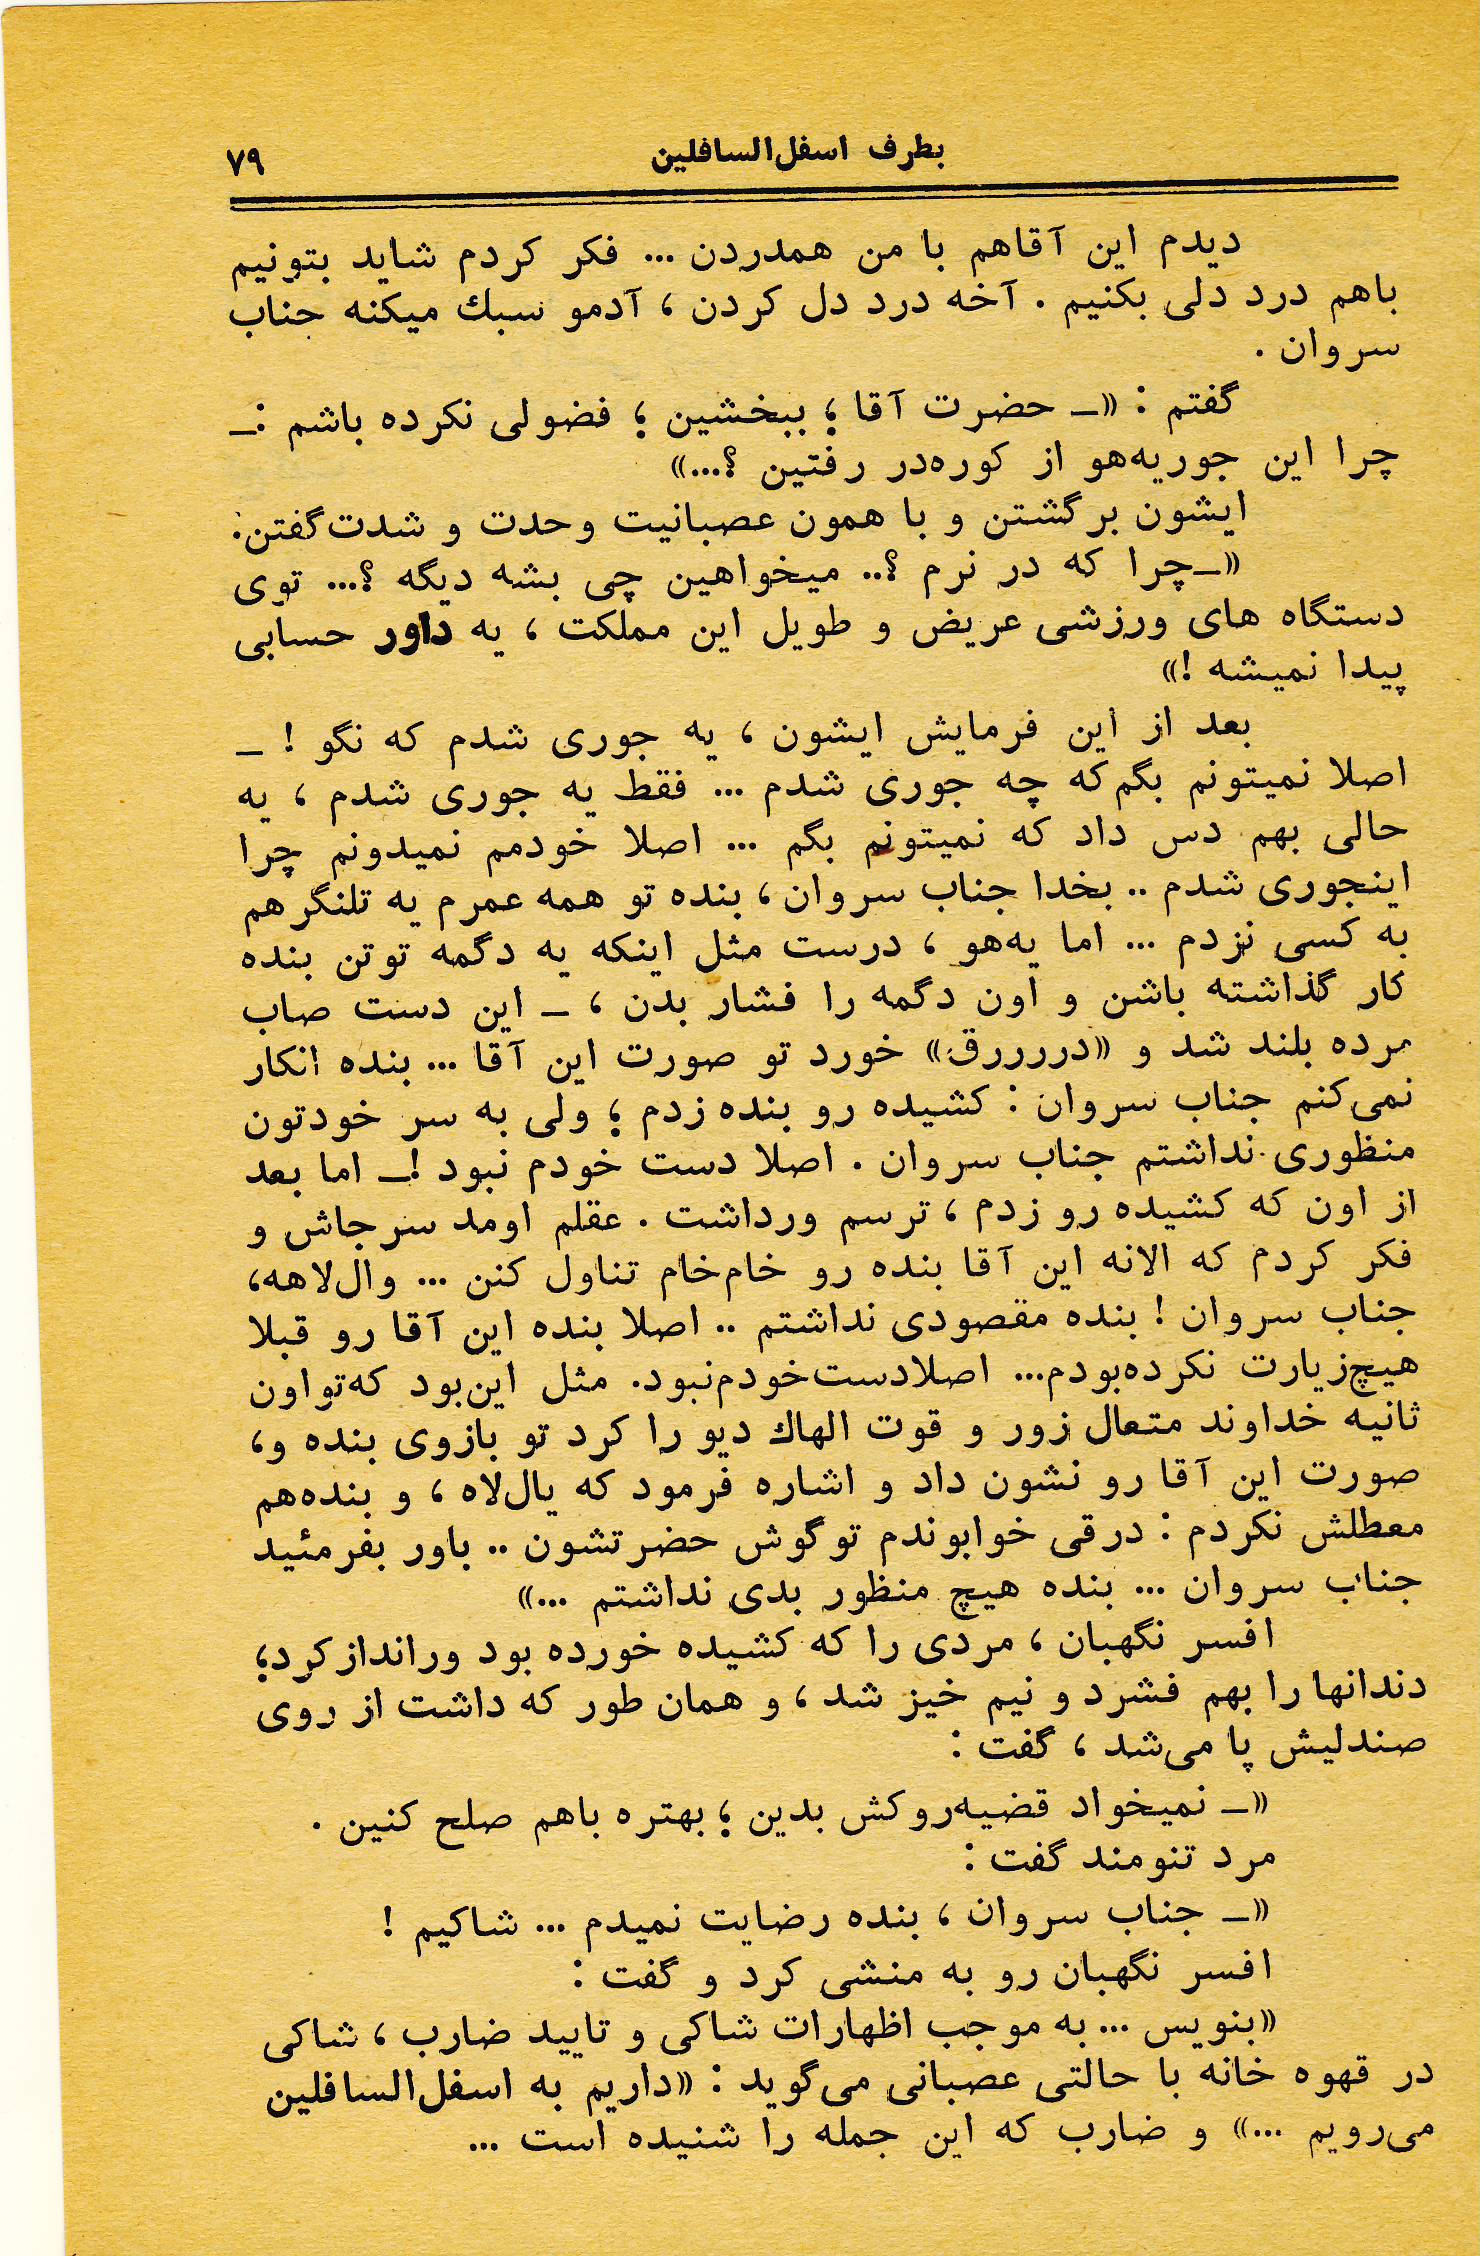 بطرف اسفل‌السافلین
۷۹
دیدم این آقاهم با من همدردن ... فکر کردم شاید بتونیم
باهم درد دلی بکنیم . آخه درد دل کردن ، آدمو سبك میکنه جناب
سروان .
گفتم : «ـ حضرت آقا ؛ ببخشین ؛ فضولی نکرده باشم :ـ
چرا این جوریه‌هو از کوره‌در رفتین ؟...»
ایشون برگشتن و با همون عصبانیت وحدت و شدت‌گفتن:
«ـ‌چرا که در نرم ؟.. میخواهین چی بشه دیگه ؟... توی
دستگاه های ورزشی عریض و طویل این مملکت ، یه داور حسابی
پیدا نمیشه !»
بعد از این فرمایش ایشون ، یه جوری شدم که نگو ! ـ
اصلا نمیتونم بگم‌که چه جوری شدم ... فقط یه جوری شدم ، یه
حالی بهم دس داد که نمیتونم بگم ... اصلا خودمم نمیدونم چرا
اینجوری شدم .. بخدا جناب سروان ، بنده تو همه عمرم یه تلنگرهم
به کسی نزدم ... اما یه‌هو ، درست مثل اینکه یه دگمه توتن بنده
کار گذاشته باشن و اون دگمه را فشار بدن ، ـ این دست صاب
مرده بلند شد و «دررررق» خورد تو صورت این آقا ... بنده انکار
نمی‌کنم جناب سروان : کشیده رو بنده زدم ؛ ولی به سر خودتون
منظوری نداشتم جناب سروان . اصلا دست خودم نبود !ـ اما بعد
از اون که کشیده رو زدم ، ترسم ورداشت . عقلم اومد سرجاش و
فکر کردم که الانه این آقا بنده رو خام‌خام تناول کنن ... وال‌لاهه،
جناب سروان ! بنده مقصودی نداشتم .. اصلا بنده این آقا رو قبلا
هیچ‌زیارت نکرده‌بودم... اصلادست‌خودم‌نبود. مثل این‌بود که‌تو اون
ثانیه خداوند متعال زور و قوت الهاك دیو را کرد تو بازوی بنده و،
صورت این آقا رو نشون داد و اشاره فرمود که یال‌لاه ، و بنده‌هم
معطلش نکردم : درقی خوابوندم توگوش حضرتشون .. باور بفرمئید
جناب سروان ... بنده هیچ منظور بدی نداشتم ...»
افسر نگهبان ، مردی را که کشیده خورده بود وراندازکرد؛
دندانها را بهم فشرد و نیم خیز شد ، و همان طور که داشت از روی
صندلیش پا می‌شد ، گفت :
«ـ نمیخواد قضیه‌روکش بدین ؛ بهتره باهم صلح کنین .
مرد تنومند گفت :
«ـ جناب سروان ، بنده رضایت نمیدم ... شاکیم !
افسر نگهبان رو به منشی کرد و گفت :
«بنویس ... به موجب اظهارات شاکی و تایید ضارب ، شاکی
در قهوه خانه با حالتی عصبانی می‌گوید : «داریم به اسفل‌السافلین
می‌رویم ...» و ضارب که این جمله را شنیده است ...